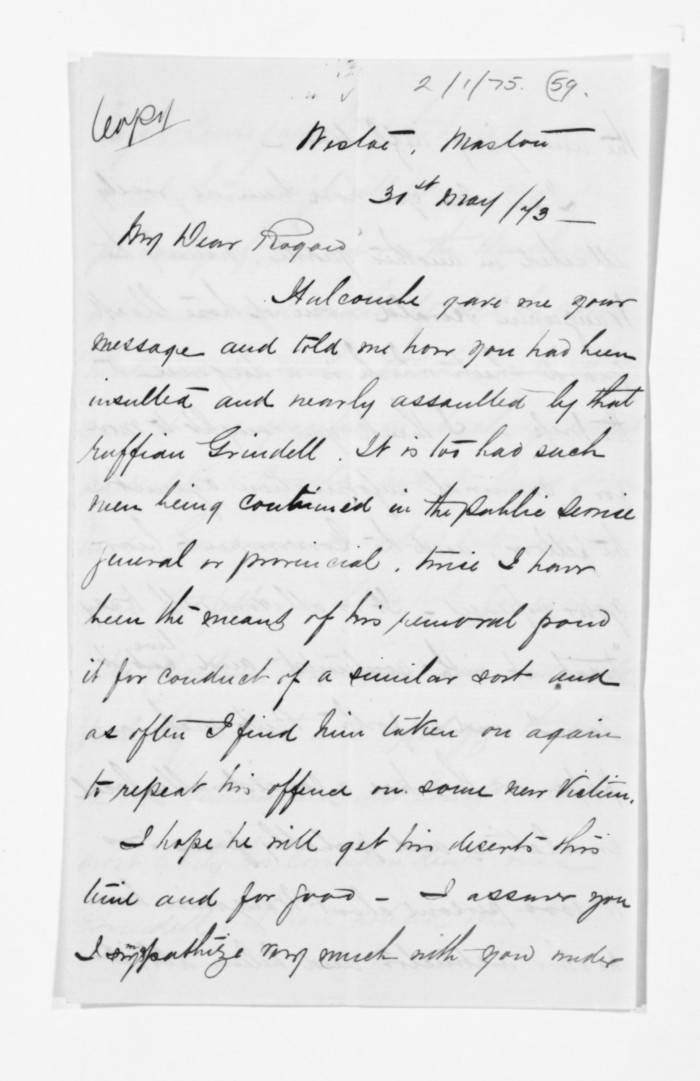 2/1/75. 59.
Copy
Westoe, Marton
31st May /73
My Dear Rogan
Halcombe gave me your
message and told me how you had been
insulted and nearly assaulted by that
ruffian Grindell. It is too bad such
men being continued in the public service
general or provincial. twice I have
been the means of his removal from
it for conduct of a similar sort and
as often I find him taken on again
to repeat his offence on some new Victim.
I hope he will get his deserts this
time and for good - I assure you
I sympathize very much with you under